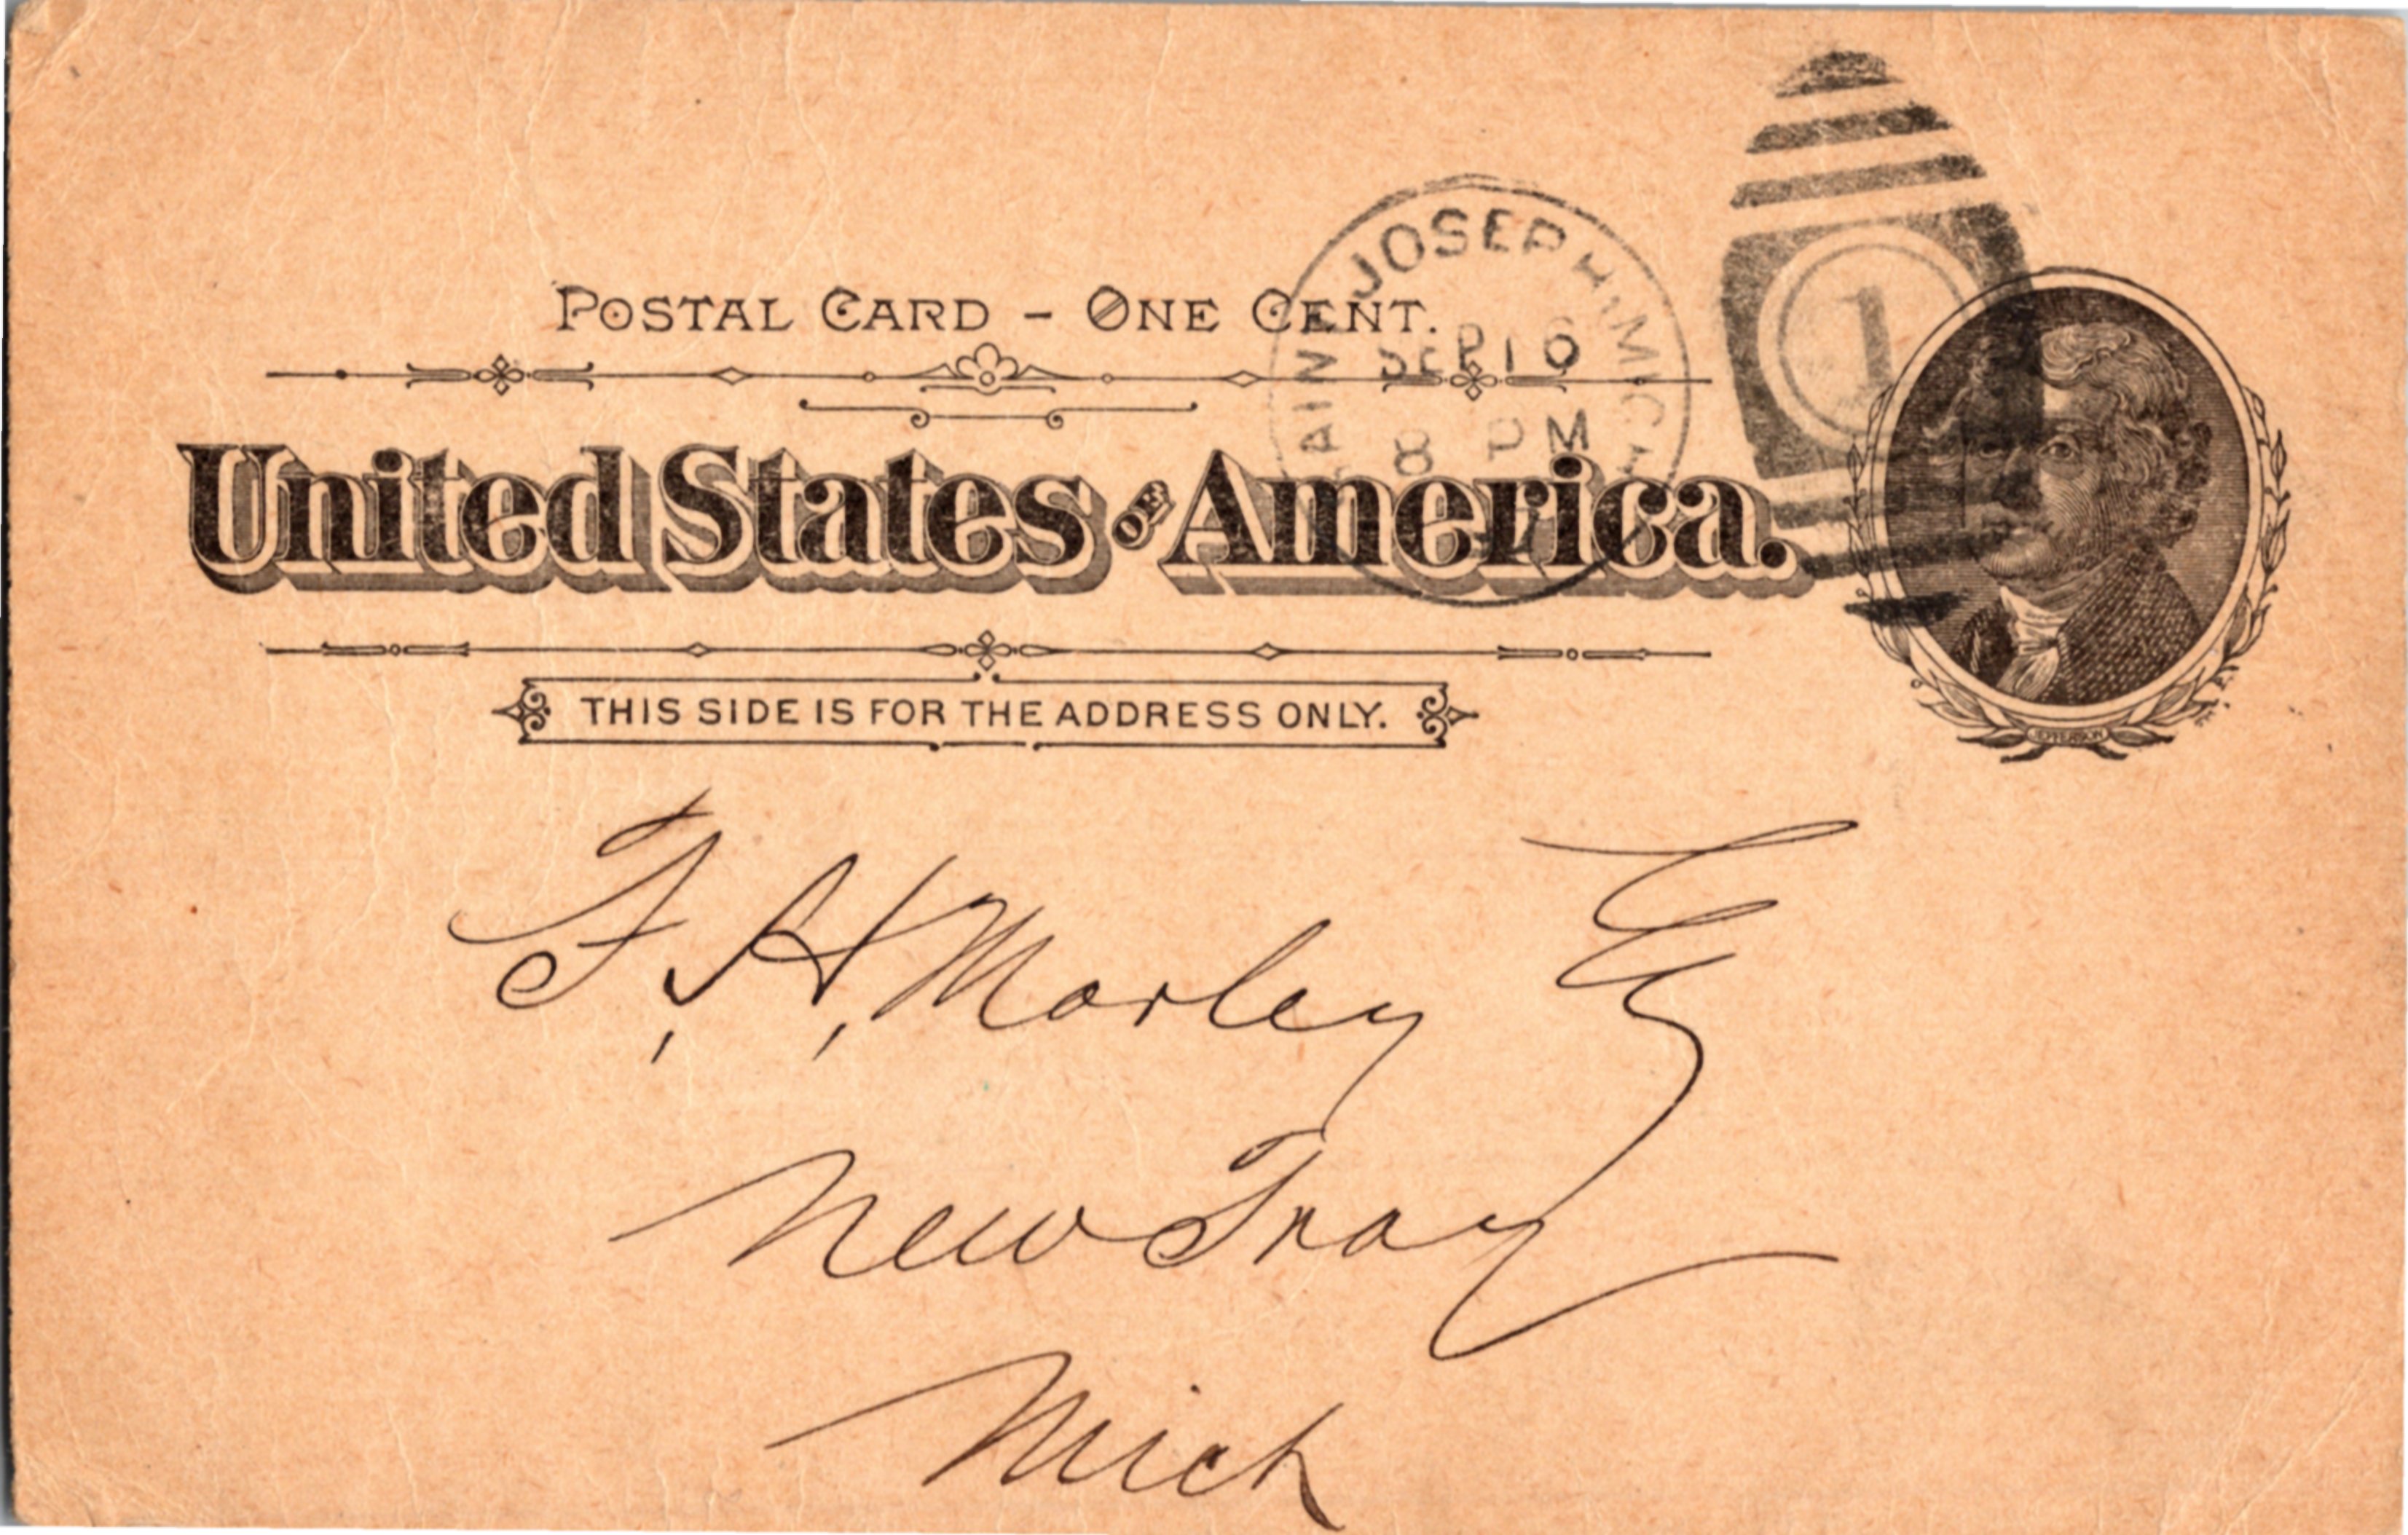 POSTAL CARD - ONE CENT.
AINT JOSEPH MICH
SEP 10
8 PM
1
United States OF America.
THIS SIDE IS FOR THE ADDRESS ONLY.
JEFFERSON
F. H. Morley
New Troy
Mich